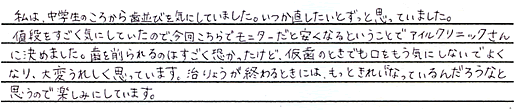 私は、中学生のころから歯並びを気にしていました。いつか直したいとずっと思っていました。
値段をすごく気にしていたので今回こちらでモニターだと安くなるということでアイルクリニックさん
に決めました。歯を削られるのはすごく恐かったけど、仮歯のときでも口をもう気にしないでよく
なり、大変うれしく思っています。治りょうが終わるときには、もっときれいなっているんだろうなと
思うので楽しみにしています。